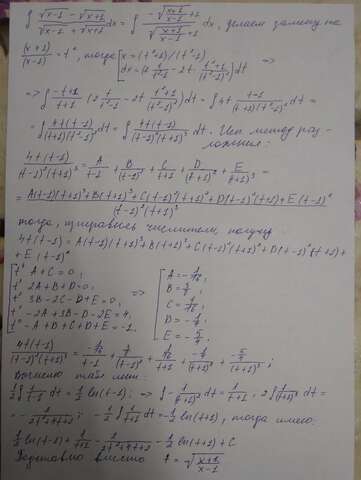 ∫ (√(x-1) - √(x+1))/(√(x-1) + √(x+1)) dx = ∫ (-√((x+1)/(x-1)) + 1)/(√((x+1)/(x-1)) + 1) dx, делаем замену на
(x+1)/(x-1) = t², тогда [x = (t²+1)/(t²-1) ; dx = (2t · 1/(t²-1) - 2t · (t²+1)/(t²-1)²) dt ⇒
⇒ ∫ (-t+1)/(t+1) (2t/(t²-1) - 2t (t²+1)/(t²-1)²) dt = ∫ 4t (t-1)/((t+1)(t²-1)²) dt =
= ∫ 4t(t-1)/((t+1)(t²-1)²) dt = ∫ 4t(t-1)/((t-1)²(t+1)³) dt. Исп. метод раз-
ложения:
4t(t-1)/((t-1)²(t+1)³) = A/(t-1) + B/(t-1)² + C/(t+1) + D/(t+1)² + E/(t+1)³ =
= (A(t-1)(t+1)³ + B(t+1)³ + C(t-1)²(t+1)² + D(t-1)²(t+1) + E(t-1)²)/((t-1)²(t+1)³)
тогда, приравняв числители, получу:
4t(t-1) = A(t-1)(t+1)³ + B(t+1)³ + C(t-1)²(t+1)² + D(t-1)²(t+1) +
+ E(t-1)²
t⁴ A+C=0,
t³ 2A+B+D=0,
t² 3B-2C-D+E=0,
t¹ -2A+3B-D-2E=4.
t⁰ -A+B+C+D+E=-1.
⇒
B = 3/8,
E = -5/4
Вычислю табл. инт.:
1/2 ∫ 1/(t-1) dt = 1/2 ln(t-1); ⇒ ∫ -1/(t+1)² dt = 1/(t+1), 2∫ 1/(t+1)³ dt =
= -1/(2t²+4t+2); -1/2 ∫ 1/(t+1) dt = -1/2 ln(t+1), тогда имею:
1/2 ln(t-1) + 1/(t+1) - 1/(2t²+4t+2) - 1/2 ln(t+1) + C
Подставлю вместо t = √((x+1)/(x-1))